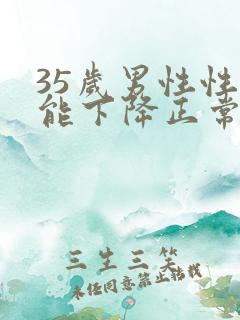 35歲男性性
能下降正常
三生三笑
未经同意禁止转载